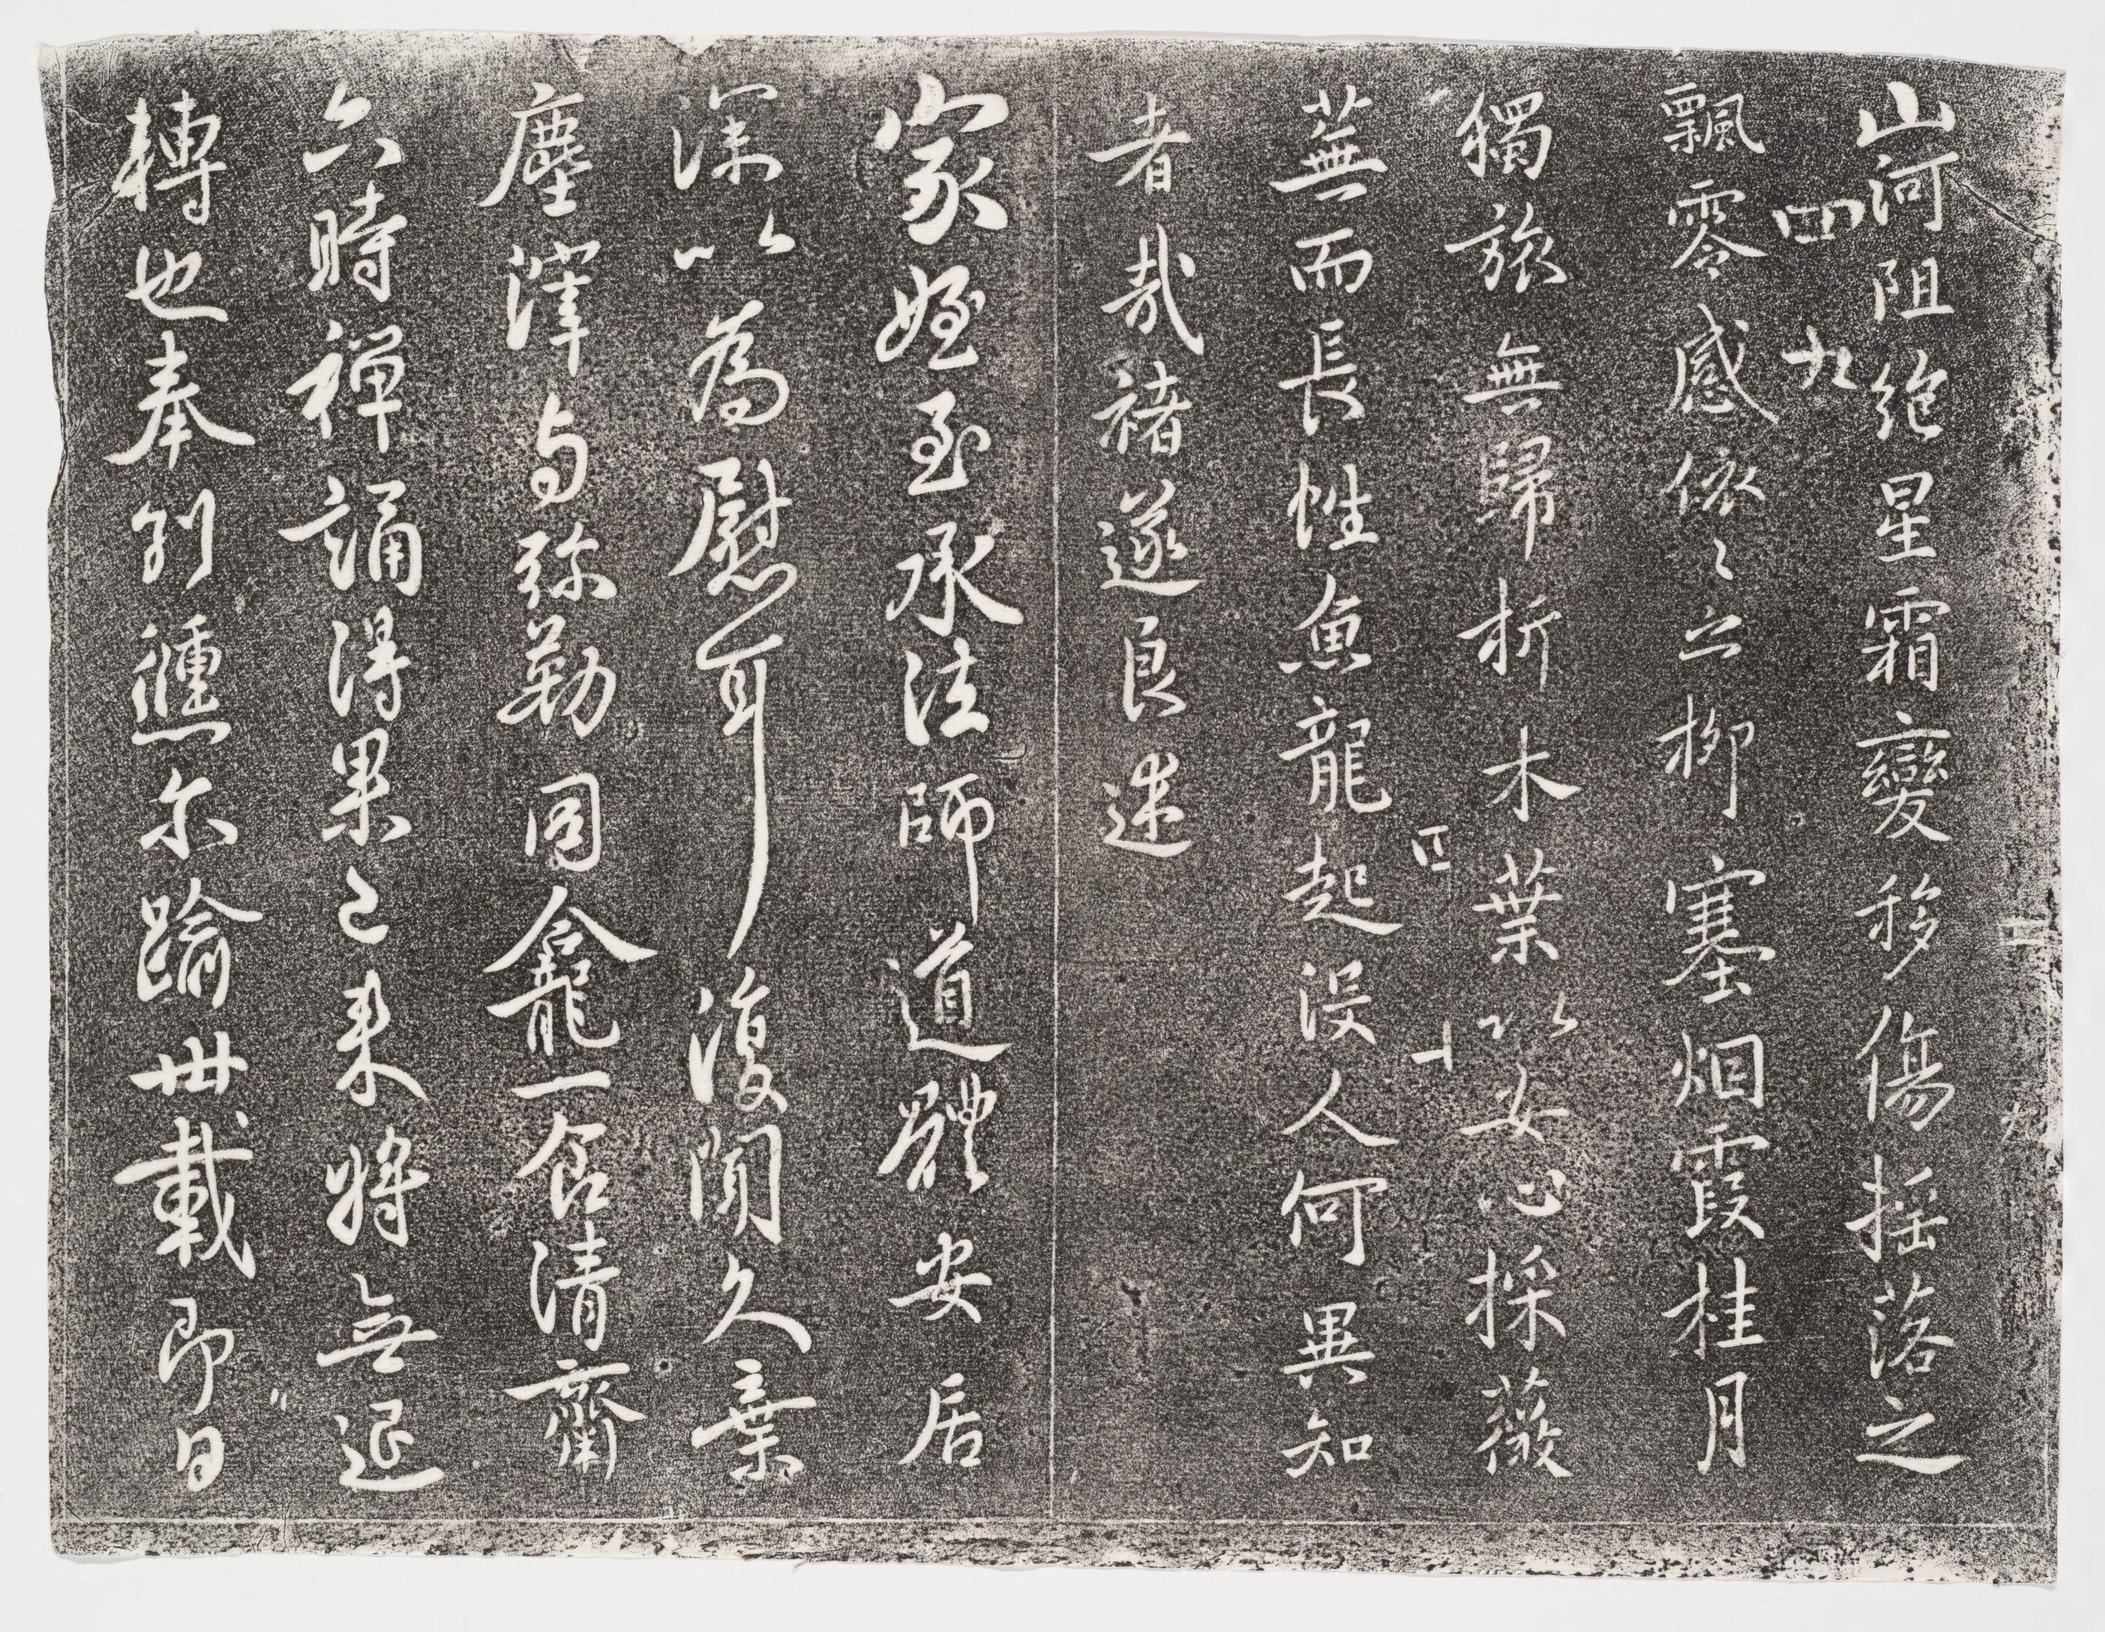 山河阻絶星霜變移傷摇落之
四九
飄零感依〻之柳塞烟霞桂月
獨旅無歸折木葉以安心採薇
四十
蕪而長性魚龍起没人何異知
者哉褚遂良述
家姪至承法師道體安居
深以為慰耳復聞久棄
塵滓与弥勒同龕一食清齋
六時禪誦得果已来將無退
轉也奉別儵尔踰卅載即日